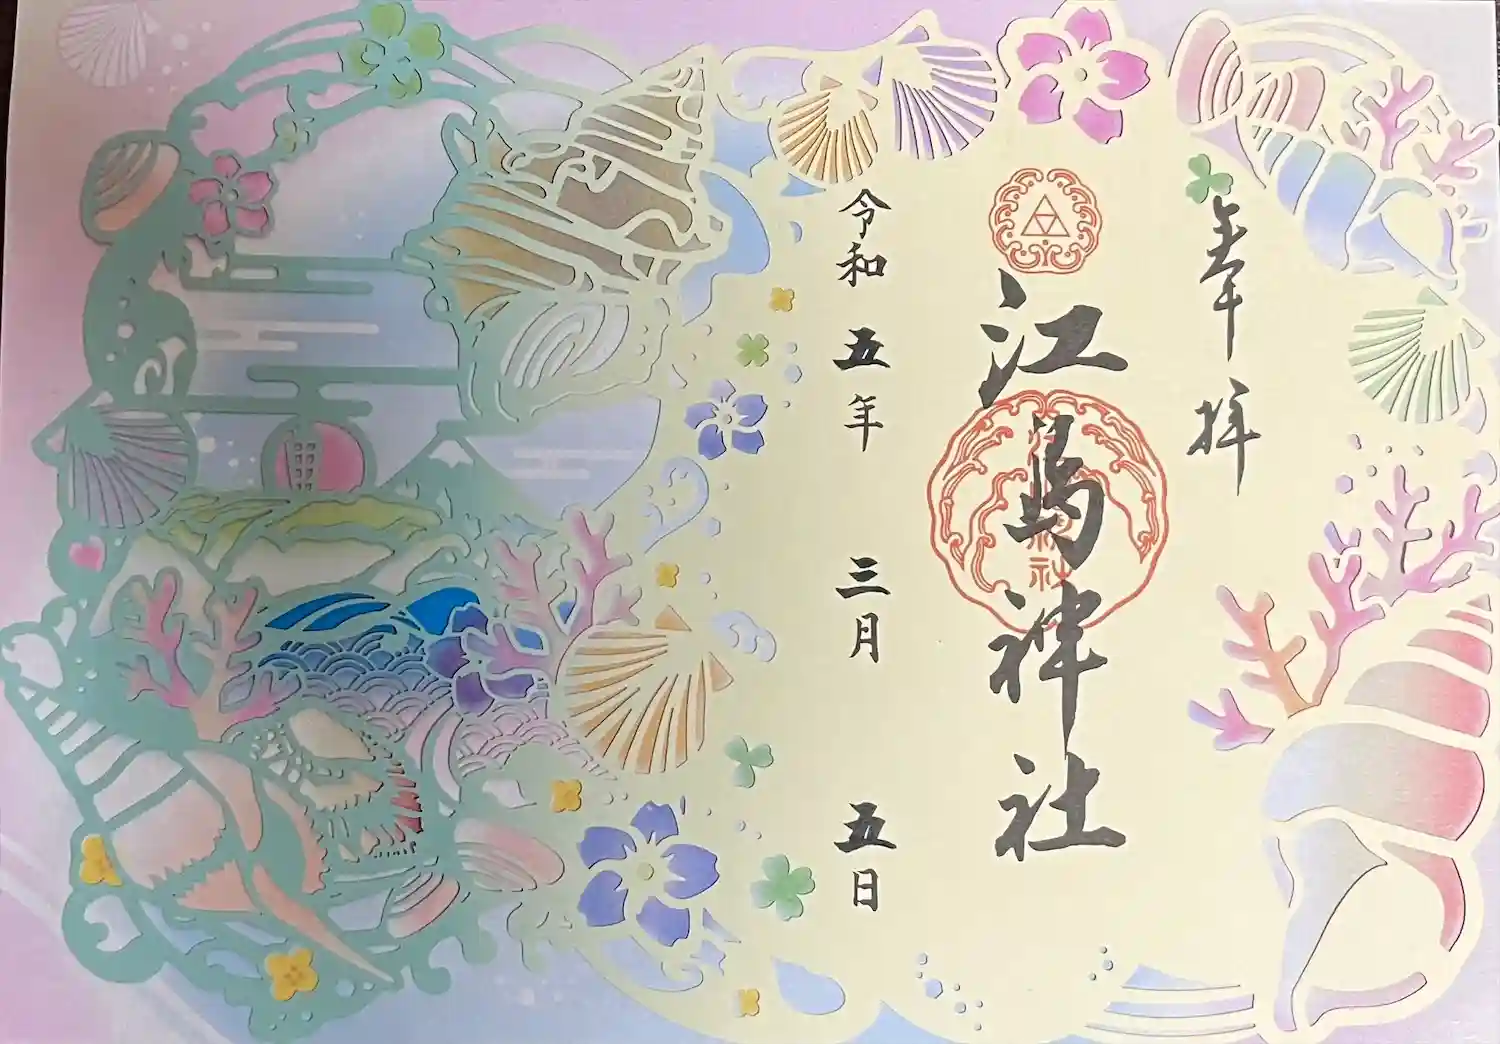 奉拝
江島神社
令和五年三月五日